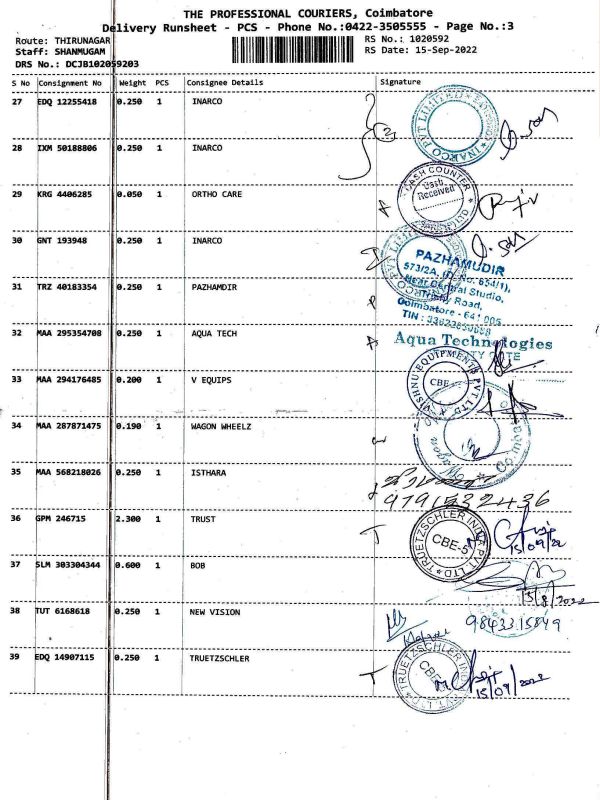 THE PROFESSIONAL COURIERS, Coimbatore
Delivery Runsheet - PCS - Phone No.:0422-3505555 - Page No.:3
Route: THIRUNAGAR
RS No.: 1020592
Staff: SHANMUGAM
RS Date: 15-Sep-2022
DRS No.: DCJB102059203
S No Consignment No Weight PCS Consignee Details Signature
27 EDQ 12255418 0.250 1 INARCO
INARCO PVT LIMITED
28 IXM 50188806 0.250 1 INARCO
29 KRG 4406285 0.050 1 ORTHO CARE
CASH COUNTER
Cash
Received
30 GNT 193948 0.250 1 INARCO
INARCO PVT LIMITED
PAZHAMUDIR
31 TRZ 40183354 0.250 1 PAZHAMDIR
Near Central Studio,
Trichy Road,
Coimbatore - 641 005
32 MAA 295354708 0.250 1 AQUA TECH
Aqua Technologies
33 MAA 294176485 0.200 1 V EQUIPS
VISHNU EQUIPMENTS PVT LTD
CBE
34 MAA 287871475 0.190 1 WAGON WHEELZ
35 MAA 568218026 0.250 1 ISTHARA
9791532436
36 GPM 246715 2.300 1 TRUST
TRUETZSCHLER INDIA PVT LTD
CBE-5
15/09/22
37 SLM 303304344 0.600 1 BOB
15/8/2022
38 TUT 6168618 0.250 1 NEW VISION
9843315849
39 EDQ 14907115 0.250 1 TRUETZSCHLER
TRUETZSCHLER INDIA PVT LTD
15/09/2022